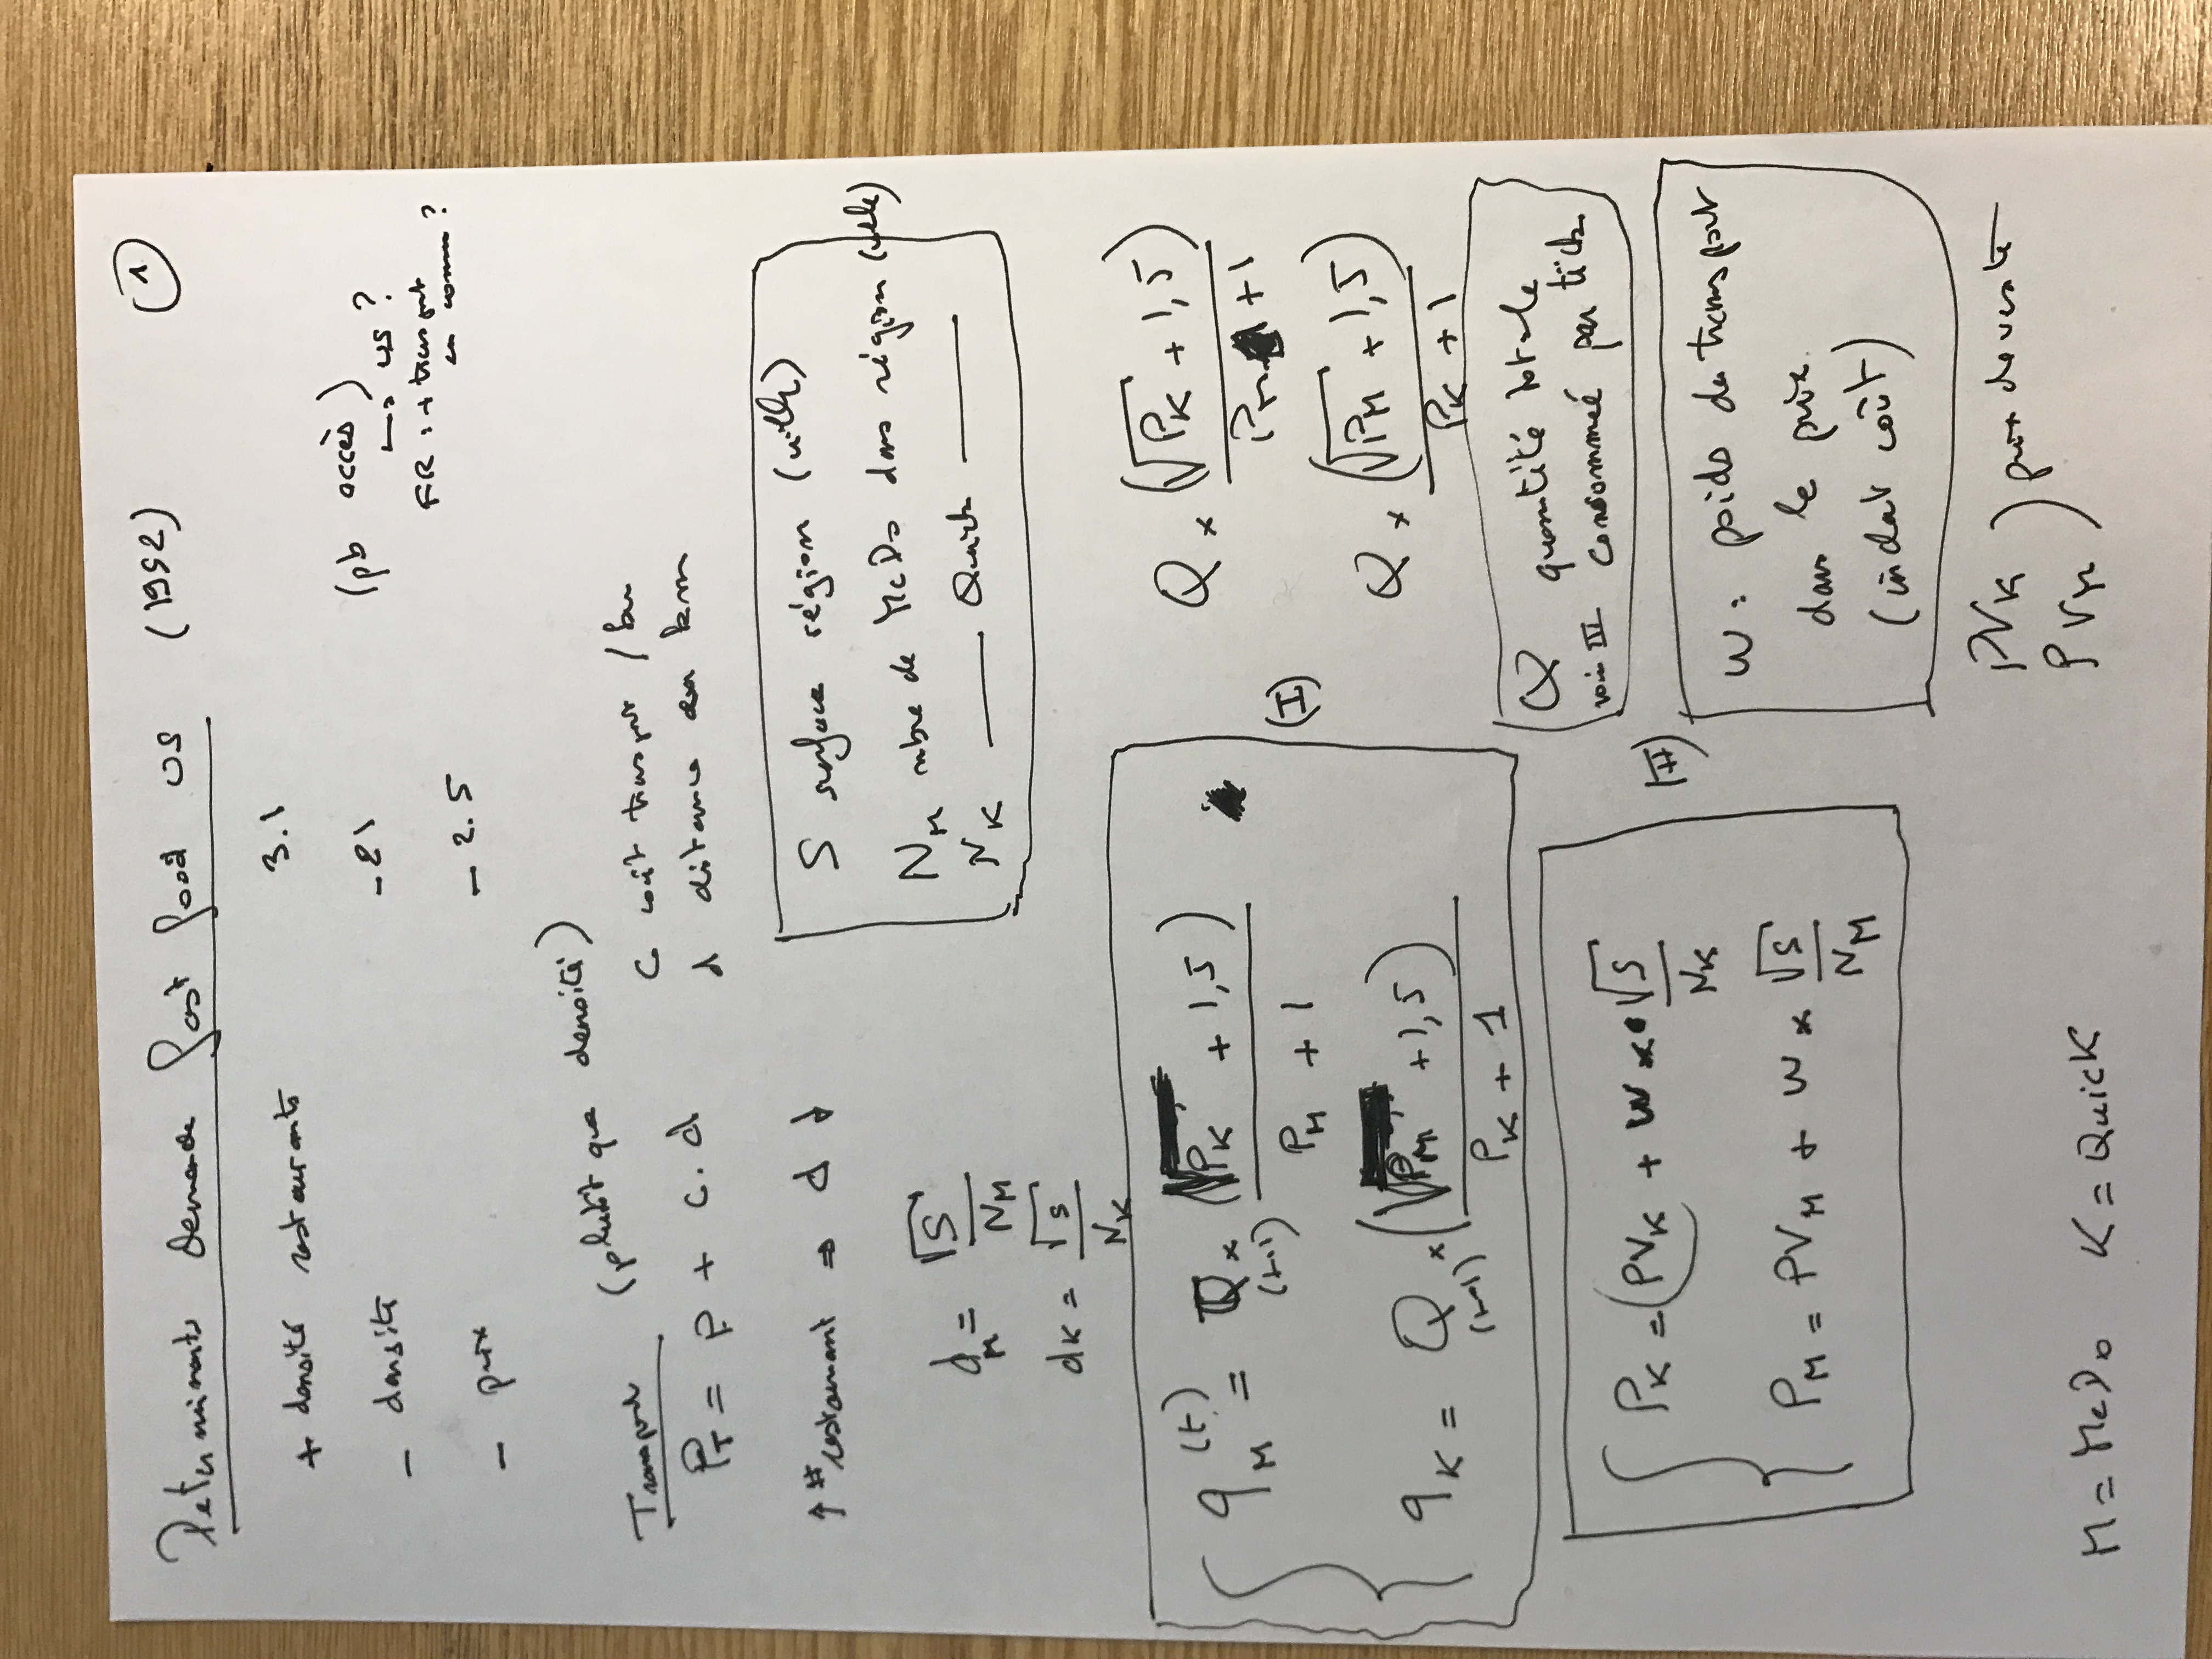 Determinants demande fast food US (1992) 1
+ densité restaurants 3.1
- densité -21 (pb accès)
↳ US ?
FR : + transport
en comm ?
- prix -2.5
Transport (plutôt que densité)
P_T = P + c.d
C coût transport / km
d distance en km
↑ # restaurant ⇒ d ↓
S surface région (ville)
N_M nbre de McDo dans région (ville)
N_K —— Quick ——
d_M = √S / N_M
d_K = √S / N_K
q_M^(t) = Q_(t-1) × (√P_K + 1,5) / (P_M + 1)
q_K = Q_(t-1) × (√P_M + 1,5) / (P_K + 1)
(I)
Q × (√P_K + 1,5) / (P_M + 1)
Q × (√P_M + 1,5) / (P_K + 1)
Q quantité totale
voir III consommée par tick
P_K = (PV_K + W × √S / N_K
P_M = PV_M + W × √S / N_M
(II)
W : poids du transport
dans le prix
(inclat coût)
PV_K
PV_M ) prix de vente
M = McDo K = Quick